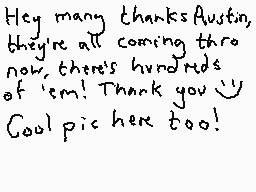 Hey many thanks Austin,
they're all coming thro
now, there's hundreds
of 'em! Thank you
Cool pic here too!